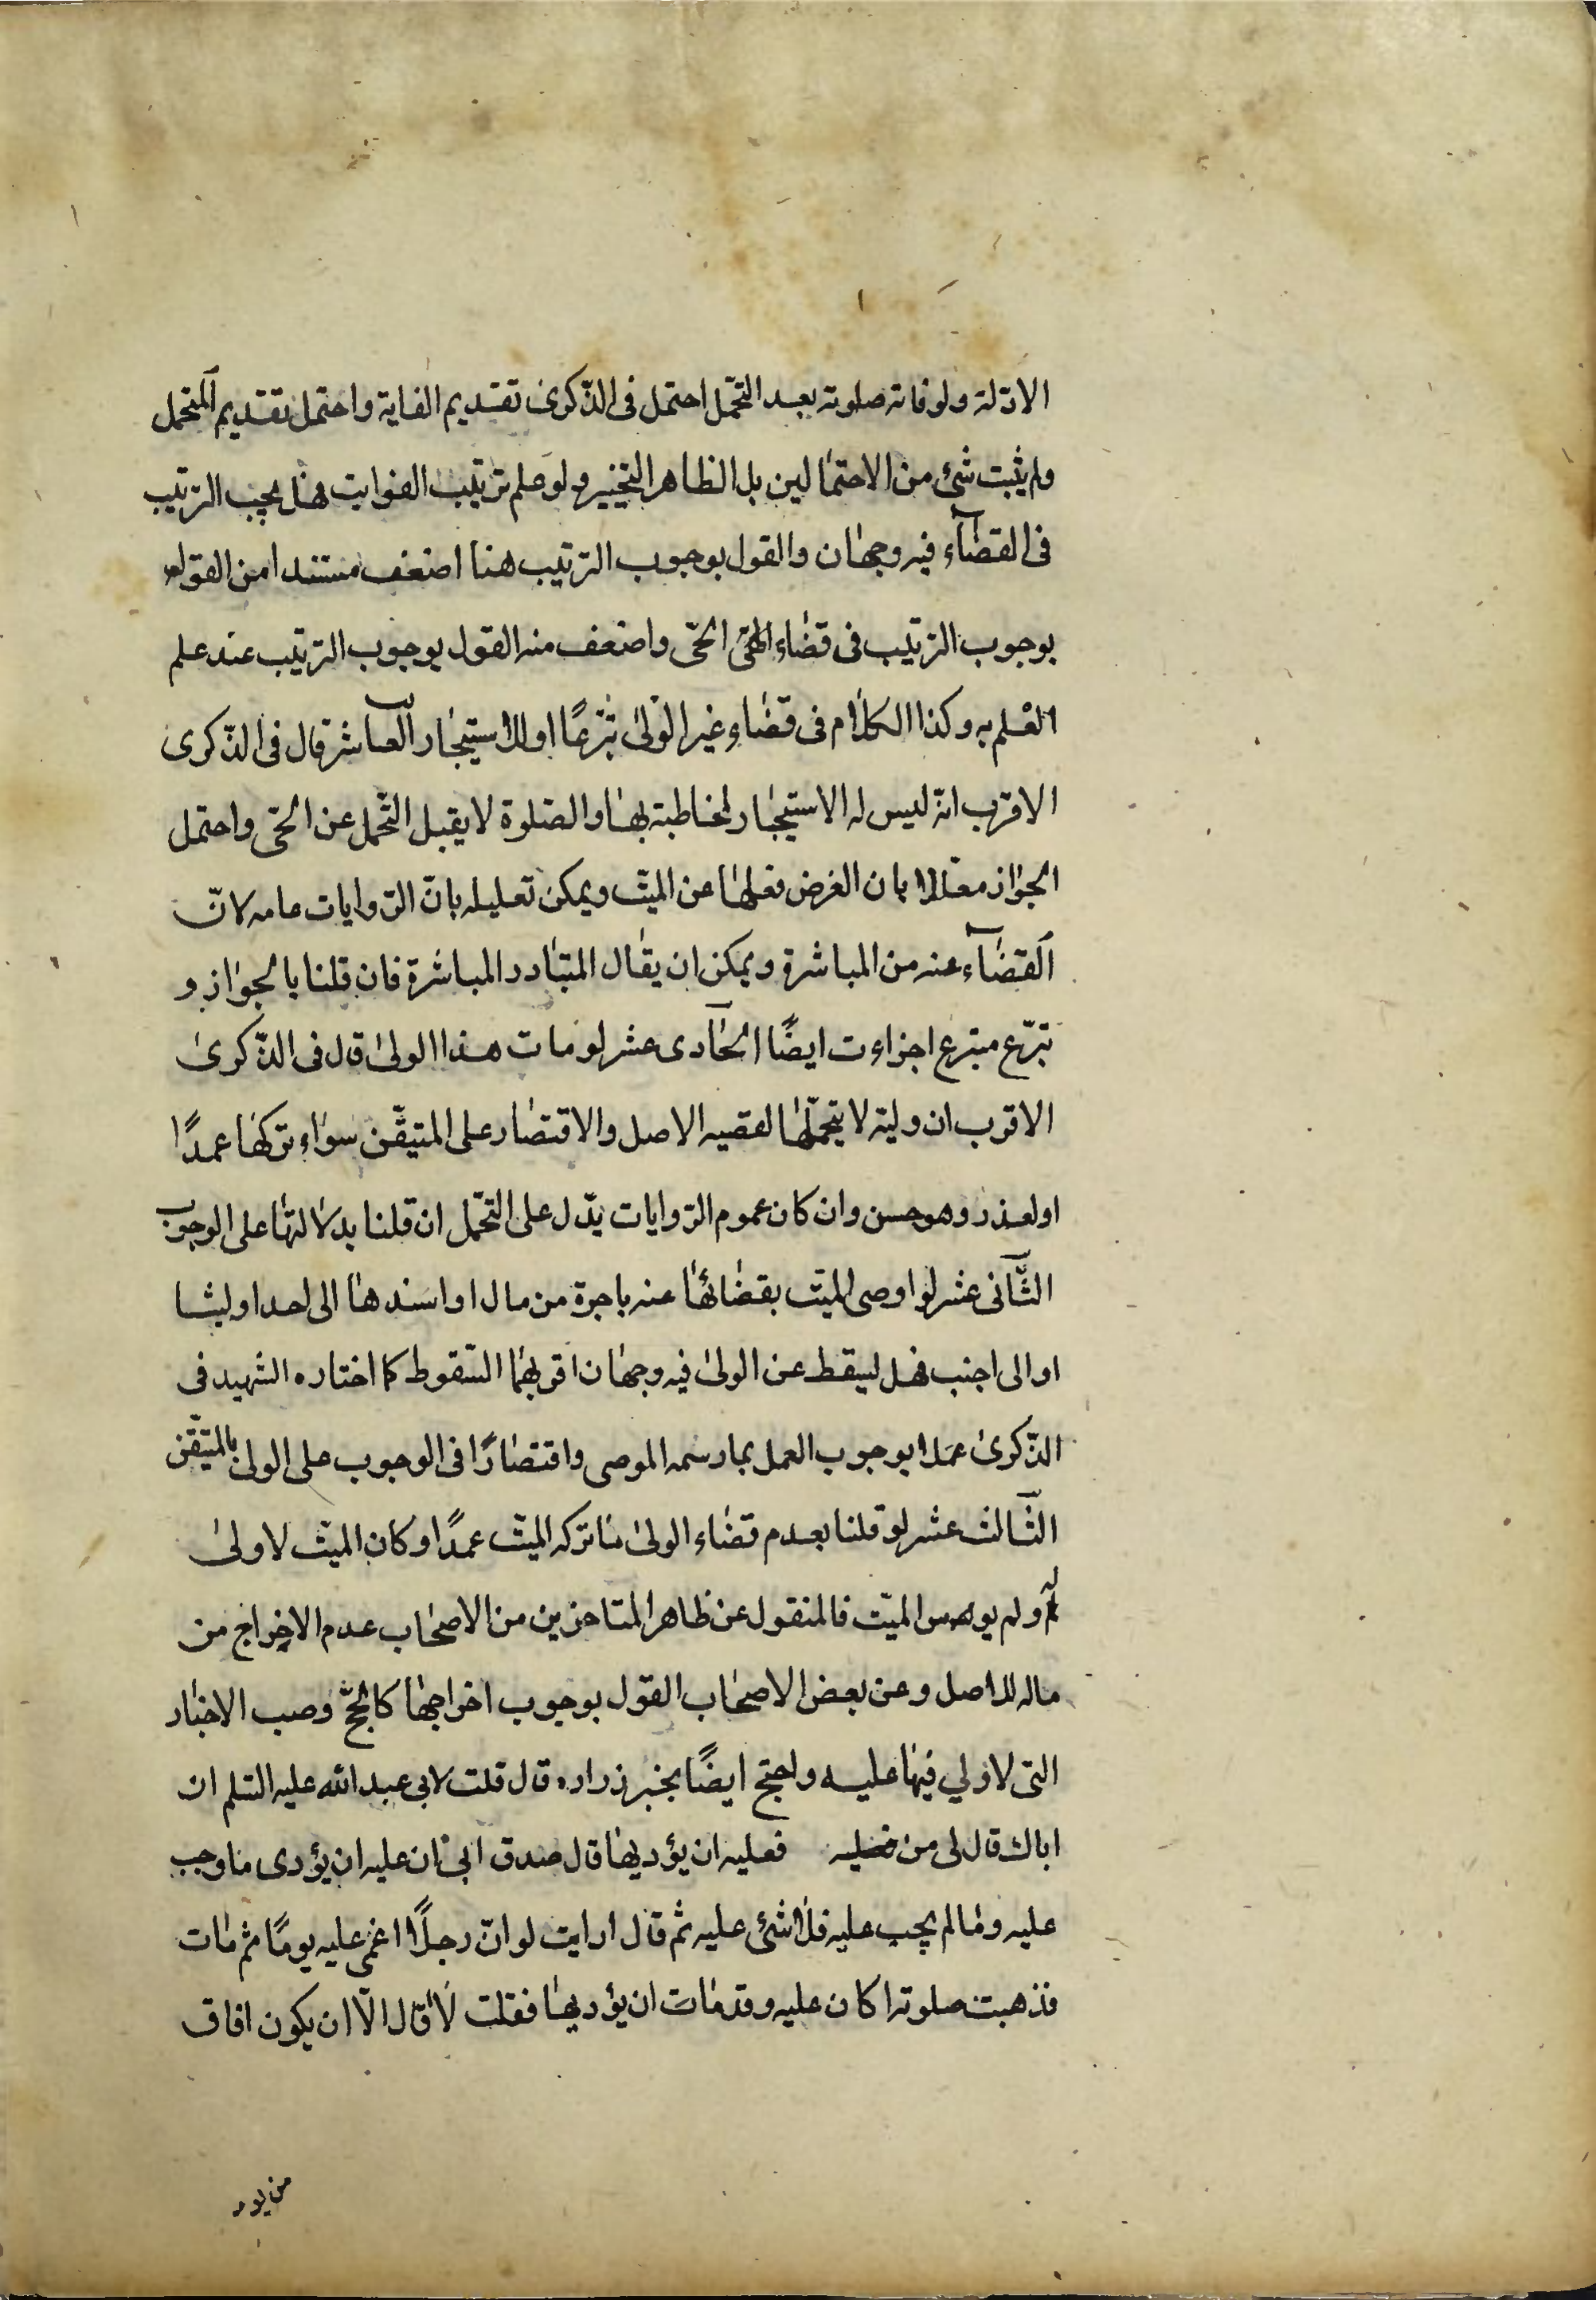 الادلة ولو فاته صلوته بعد التحمّل احتمل فى الذّكرى تقديم الفاية واحتمل تقديم المتحمل
ولم يثبت شئ من الاحتمالين بل الظاهر التخيير ولو علم ترتيب الفوايت هل يجب الترتيب
فى القضآء فيه وجهان والقول بوجوب الترتيب هنا اضعف مستندا من القول
بوجوب الترتيب فى قضاء الحىّ واضعف منه القول بوجوب الترتيب عند علم
العلم به وكذا الكلام فى قضاء غير الولى تبرّعًا او الاستيجار العاشر قال فى الذّكرى
الاقرب انّه ليس له الاستيجار لمخاطبته بها والصّلوة لا يقبل التّحمل عن الحىّ واحتمل
الجواز معلّلا بان الغرض فعلها عن الميّت ويمكن تعليله بانّ الرّوايات عامه لانّ
القضآء عنه من المباشرة ويمكن ان يقال المتبادر المباشرة فان قلنا بالجواز و
تبرّع متبرع اجزاءت ايضًا الحآدى عشر لو مات هذا الولى قال فى الذّكرى
الاقرب ان وليّه لا يتحمّلها لقضيه الاصل والاقتصار على المتيقّن سواء تركها عمدًا
او لعذر وهو حسن وان كان عموم الرّوايات يدّل على التحّمل ان قلنا بدلالتها على الوجوب
الثّآنى عشر لو اوصى الميّت بقضائها عنه باجرة من مال او اسندها الى احد اوليا
او الى اجنب فهل ليسقط عن الولى فيه وجهان اقربهما السّقوط كما اختاره الشهيد فى
الذّكرى عملا بوجوب العمل بما رسمه الموصى واقتصارًا فى الوجوب على الولى بالمتيّقن
الثّالث عشر لو قلنا بعدم قضاء الولى ما تركه الميّت عمدًا وكان الميّت لا ولى
له ولم الميّت فالمنقول عن ظاهر المتاخرين من الاصحاب عدم الاخراج من
ماله وعن بعض الاصحاب القول بوجوب اخراجها كالحجّ وصب الاخبار
التى لا ولي فيها عليه واحتج ايضًا بخبر زراره قال قلت لابى عبد الله عليه السّلم ان
اباك قال لى من فعليه ان يؤديها قال صدق ابى ان عليه ان يؤدى ما وجب
عليه وما لم يجب عليه فلا شئ عليه ثم قال ارايت لو انّ رجلًا اغمى عليه يومًا ثم مات
فذهبت صلوته اكان عليه وقد مات ان يؤديها فقلت لا قال الّا ان يكون افاق
من يوم